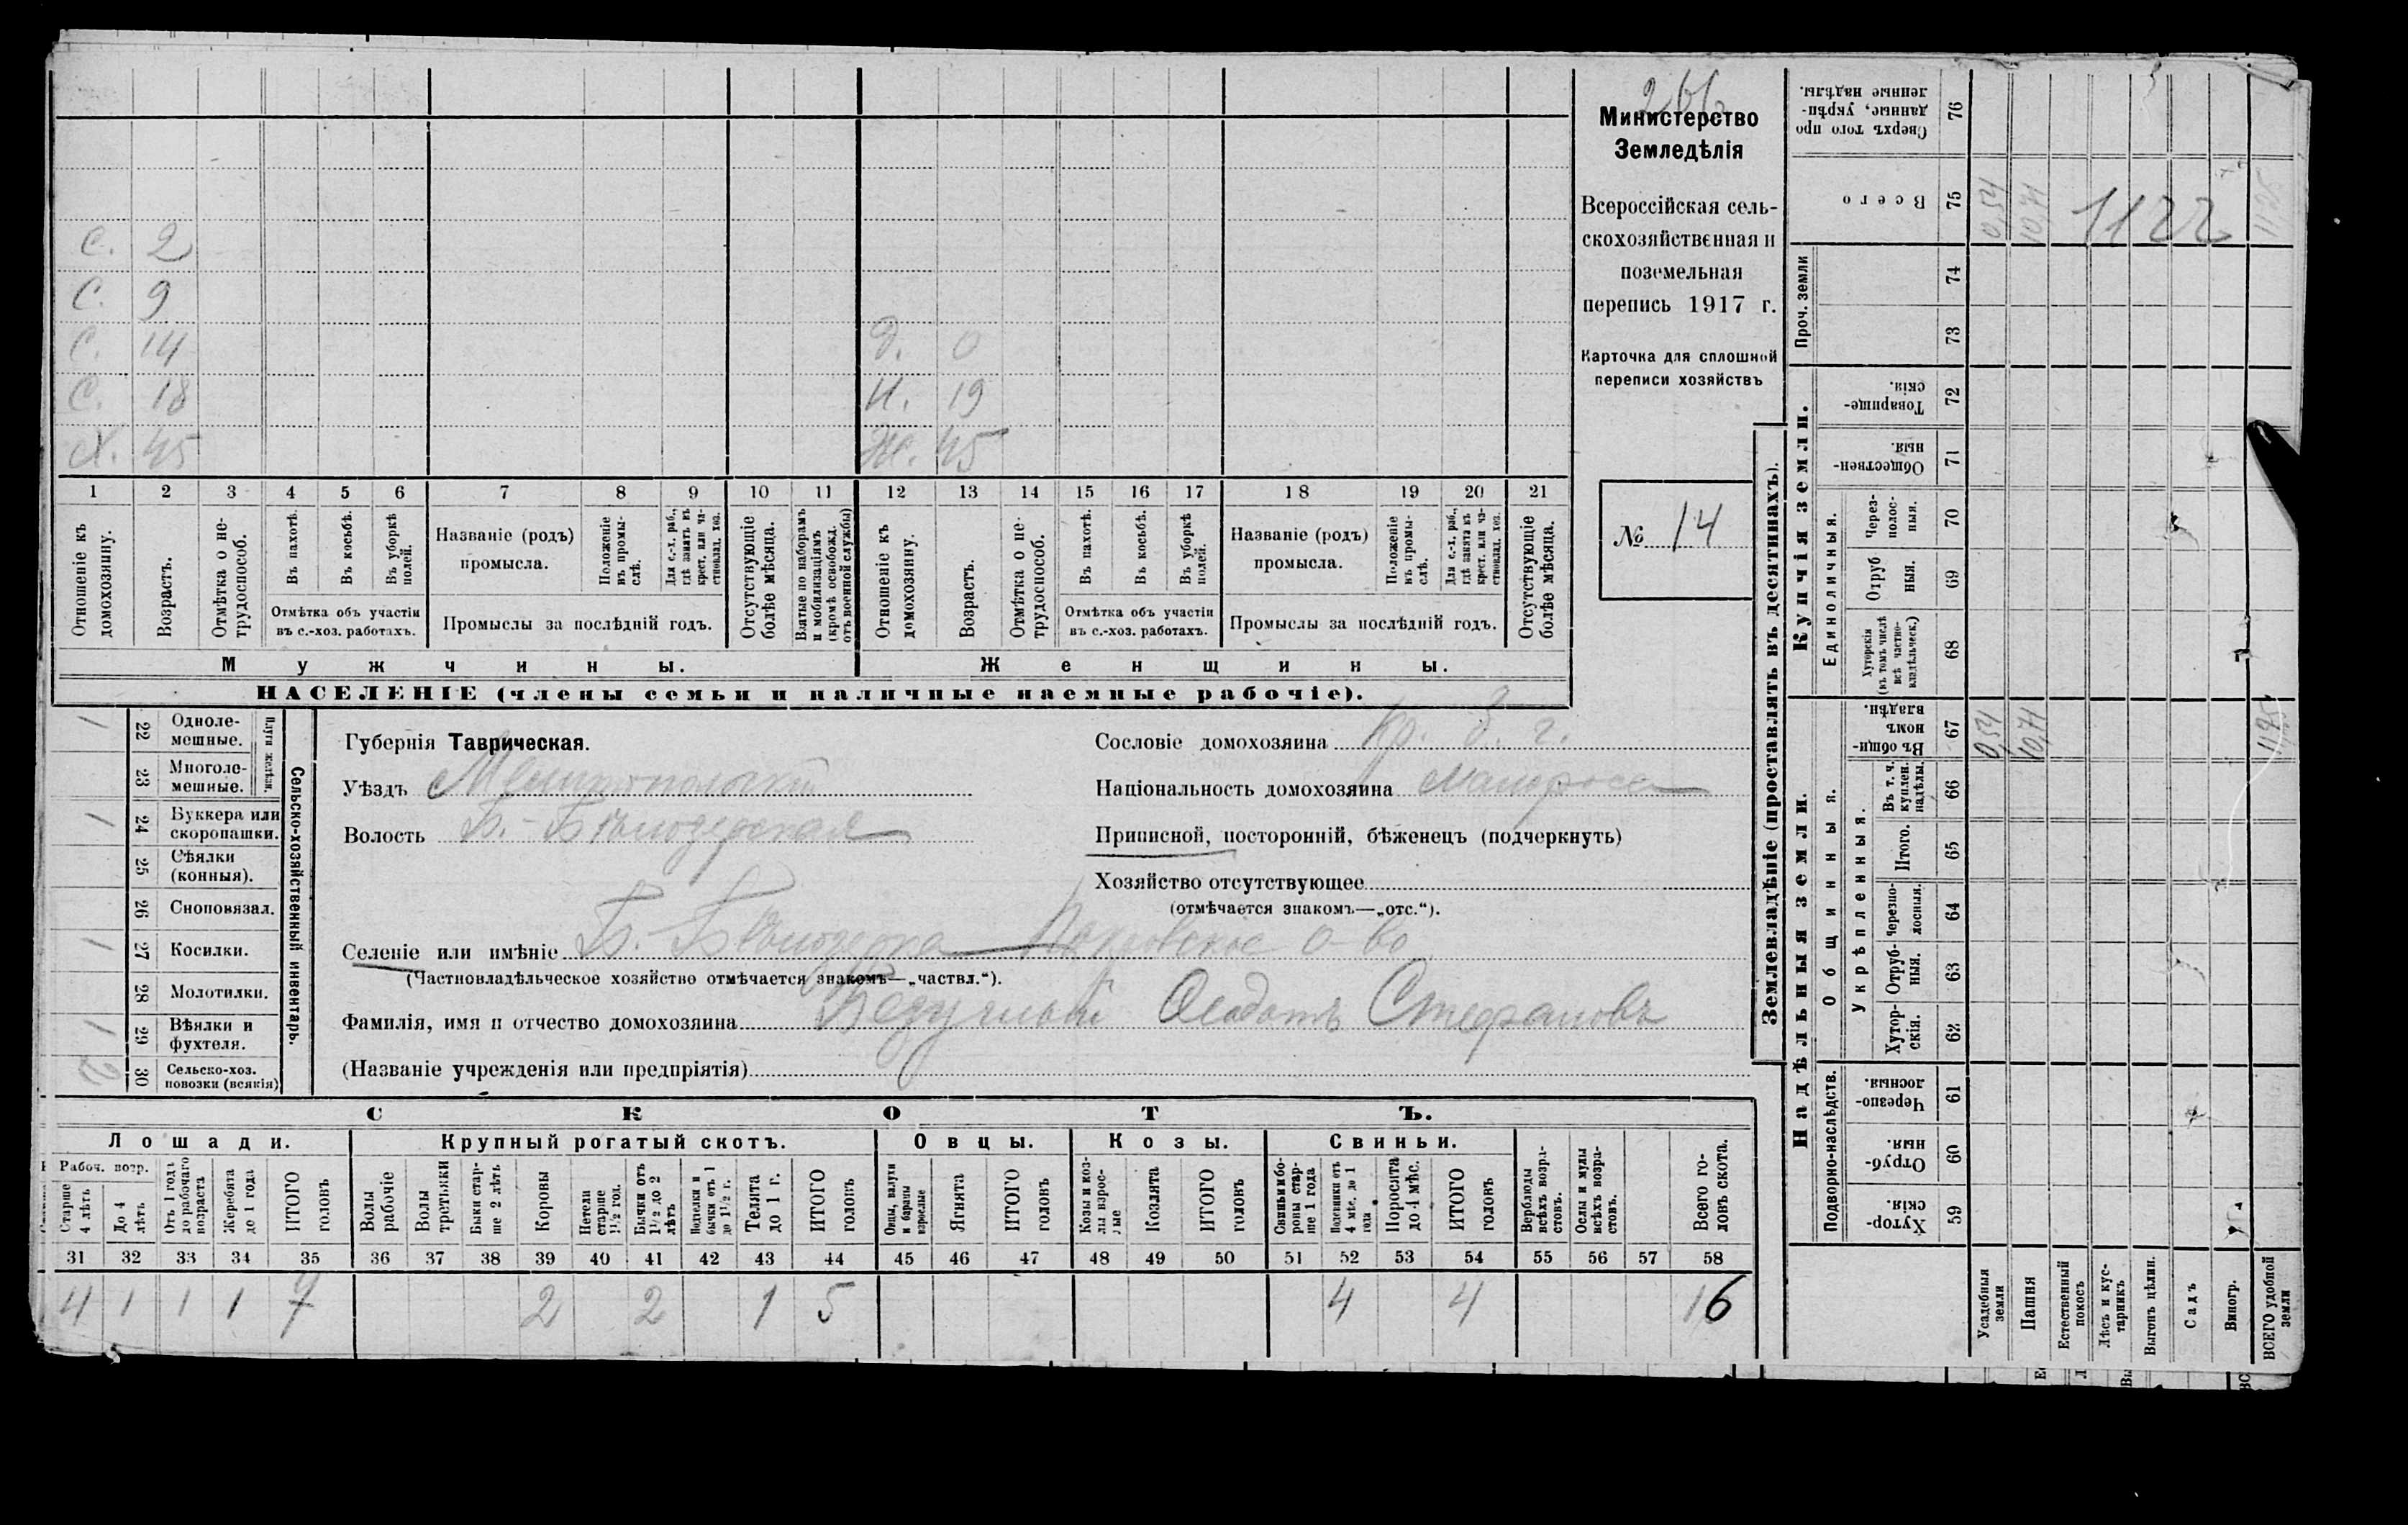 266
Министерство
Земледѣлія
Всероссійская сель-
скохозяйственная и
поземельная
перепись 1917 г.
Карточка для сплошной
переписи хозяйствъ
№ 14
С. 2
С. 9
С. 14 Д. 0
С. 18 Н. 19
Х. 45 Ж. 45
1 2 3 4 5 6 7 8 9 10 11 12 13 14 15 16 17 18 19 20 21
Отношеніе къ домохозяину.
Возрастъ.
Отмѣтка о не-трудоспособ.
Въ пахотѣ.
Въ косьбѣ.
Въ уборкѣ полей.
Отмѣтка объ участіи
въ с.-хоз. работахъ.
Названіе (родъ)
промысла.
Положеніе въ промы-слѣ.
Для с.-х. раб., гдѣ занятъ въ крест. или ча-стновлад. хоз.
Промыслы за послѣдній годъ.
Отсутствующіе болѣе мѣсяца.
Взятые по наборамъ и мобилизаціямъ (кромѣ освобожд. отъ военной службы)
Отношеніе къ домохозяину.
Возрастъ.
Отмѣтка о не-трудоспособ.
Въ пахотѣ.
Въ косьбѣ.
Въ уборкѣ полей.
Отмѣтка объ участіи
въ с.-хоз. работахъ.
Названіе (родъ)
промысла.
Положеніе въ промы-слѣ.
Для с.-х. раб., гдѣ занята въ крест. или ча-стновлад. хоз.
Промыслы за послѣдній годъ.
Отсутствующіе болѣе мѣсяца.
Мужчины. Женщины.
НАСЕЛЕНІЕ (члены семьи и наличные наемные рабочіе).
Сельско-хозяйственный инвентарь.
Плуги желѣзн.
1 22 Одноле-мешные.
23 Многоле-мешные.
1 24 Буккера или скоропашки.
25 Сѣялки (конныя).
26 Сноповязал.
1 27 Косилки.
28 Молотилки.
1 29 Вѣялки и фухтеля.
2 30 Сельско-хоз. повозки (всякія)
Губернія Таврическая.
Уѣздъ Мелитопольскій
Волость Б.-Бѣлозерская
Сословіе домохозяина кр.
Національность домохозяина малоросс
Приписной, посторонній, бѣженецъ (подчеркнуть)
Хозяйство отсутствующее
(отмѣчается знакомъ—„отс.“).
Селеніе или имѣніе Б.-Бѣлозерка Покровское о-во
(Частновладѣльческое хозяйство отмѣчается знакомъ—„частвл.“).
Фамилія, имя и отчество домохозяина Стефановъ
(Названіе учрежденія или предпріятія)
СКОТЪ.
Лошади. Крупный рогатый скотъ. Овцы. Козы. Свиньи.
Рабоч. возр.
Старше 4 лѣтъ
До 4 лѣтъ
Отъ 1 года до рабочаго возраста
Жеребята до 1 года
ИТОГО головъ
Волы рабочіе
Волы третьяки
Быки стар-ше 2 лѣтъ
Коровы
Нетели старше 1½ год.
Бычки отъ 1½ до 2 лѣтъ
Подтелки и бычки отъ 1 до 1½ г.
Телята до 1 г.
ИТОГО головъ
Овцы, валухи и бараны взрослые
Ягнята
ИТОГО головъ
Козы и коз-лы взрос-лые
Козлята
ИТОГО головъ
Свиньи и бо-ровы стар-ше 1 года
Подсвинки отъ 4 мѣс. до 1 года
Поросята до 4 мѣс.
ИТОГО головъ
Верблюды всѣхъ возра-стовъ.
Ослы и мулы всѣхъ возра-стовъ.
Всего го-ловъ скота.
31 32 33 34 35 36 37 38 39 40 41 42 43 44 45 46 47 48 49 50 51 52 53 54 55 56 57 58
4 1 1 1 7 2 2 1 5 4 4 16
Землевладѣніе (проставлять въ десятинахъ).
Купчія земли.
Надѣльныя земли.
Сверхъ того про данные, укрѣп-ленные надѣлы. 76
Всего 75 0,54 10,71 1122 11,25
Проч. земли 74 73
Товарище-скія. 72
Обществен-ныя. 71
Единоличныя.
Через-полос-ныя. 70
Отруб ныя. 69
Хуторскія (въ томъ числѣ всѣ частно-владѣльческ.) 68
Общинныя.
Въ общин-номъ владѣн. 67 0,54 10,71 11,25
Укрѣпленныя.
Въ т. ч. куплен. надѣлы. 66
Итого. 65
Черезпо-лосныя. 64
Отруб-ныя. 63
Хутор-скія. 62
Подворно-наслѣдств.
Черезпо-лосныя. 61
Отруб-ныя. 60
Хутор-скія. 59
Усадебныя земли
Пашня
Естественный покосъ
Лѣсъ и кус-тарникъ
Выгонъ цѣлин.
Садъ
Виногр.
ВСЕГО удобной земли